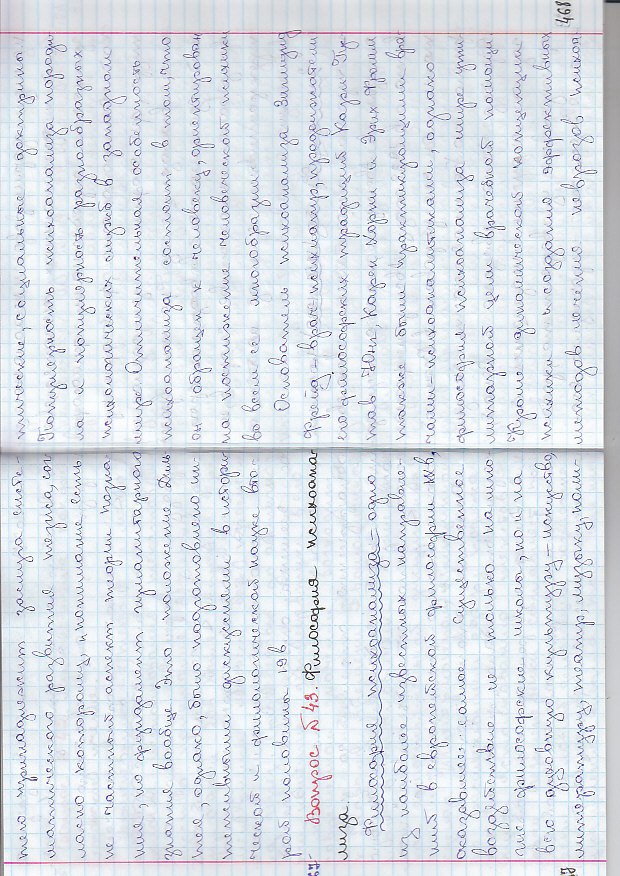 тею принадлежит заслуга систе-
матического развития тезиса, сог-
ласно которому, «понимание есть
не частный аспект теории позна-
ния, но фундамент гуманитарного
знания вообще. Это положение Диль-
тея, однако, было подготовлено ин-
тенсивными дискуссиями в истори-
ческой и филологической науке вто-
рой половины 19 в.
Вопрос №43. Философия психоана-
лиза.
Философия психоанализа – одно
из наиболее известных направле-
ний в европейской философии XX в,
оказавшее самое существенное
воздействие не только на мно-
гие философские школы, но и на
всю духовную культуру – искусство,
литературу, театр, музыку, поли-
тические, социальные доктрины.
Популярность психоанализа породи-
ла и популярность разнообразных
психологических служб в западном
мире. Отличительная особенность
психоанализа состоит в том, что
он обращен к человеку, ориентирован
на постижение человеческой психики
во всем ее многообразии.
Основатель психоанализа Зигмунд
Фрейд – врач-психиатр, продолжатели
его философских традиций Карл Гус-
тав Юнг, Карен Хорни и Эрих Фромм
также были практикующими вра-
чами-психоаналитиками, однако
философия психоанализа шире ути-
литарной цели врачебной помощи.
Кроме динамической концепции
психики и создания эффективных
методов лечения неврозов психоа-
468